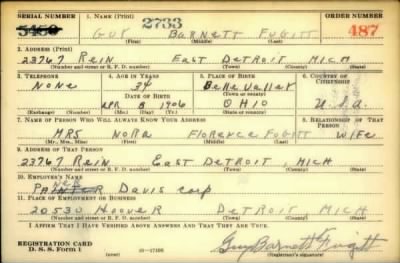 SERIAL NUMBER 1. NAME (Print) ORDER NUMBER
5450 2733 487
GUY BARNETT FUGITT
(First) (Middle) (Last)
2. ADDRESS (Print)
23767 REIN EAST DETROIT MICH
(Number and street or R. F. D. number) (Town) (County) (State)
3. TELEPHONE 4. AGE IN YEARS 5. PLACE OF BIRTH 6. COUNTRY OF CITIZENSHIP
NONE 34 Belle Valley
DATE OF BIRTH (Town or county)
APR 8 1906 OHIO U.S.A.
(Exchange) (Number) (Mo.) (Day) (Yr.) (State or country)
7. NAME OF PERSON WHO WILL ALWAYS KNOW YOUR ADDRESS 8. RELATIONSHIP OF THAT PERSON
MRS NORA FLORENCE FUGITT WIFE
(Mr., Mrs., Miss) (First) (Middle) (Last)
9. ADDRESS OF THAT PERSON
23767 REIN EAST DETROIT, MICH
(Number and street or R. F. D. number) (Town) (County) (State)
10. EMPLOYER'S NAME
DAVIS CORP
11. PLACE OF EMPLOYMENT OR BUSINESS
20530 HOOVER DETROIT MICH
(Number and street or R. F. D. number) (Town) (County) (State)
I AFFIRM THAT I HAVE VERIFIED ABOVE ANSWERS AND THAT THEY ARE TRUE.
REGISTRATION CARD
D. S. S. Form 1 16—17105 Guy Barnett Fugitt
(Registrant's signature)